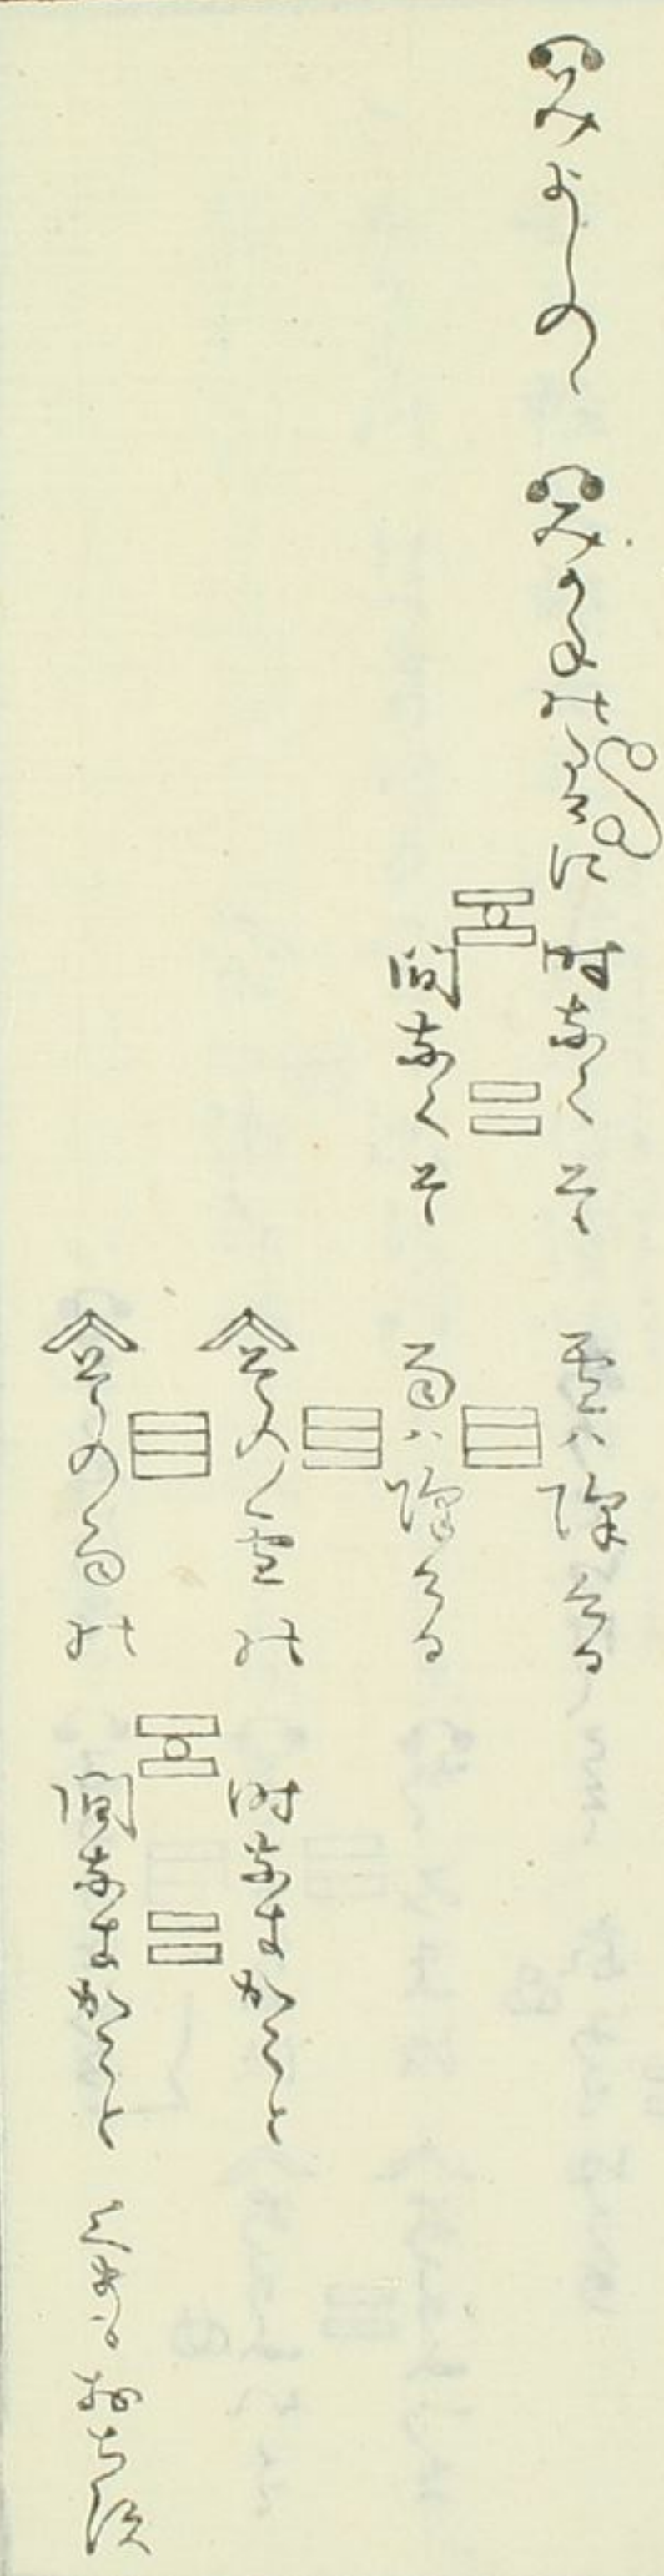 みよしのゝ　みかねのたけに　時なくそ　雪ハ降ける
間なくそ　雨ハ降ける
そのゝ雪の　時なきかこと
その雨の　間なきかこと　くまもおちす